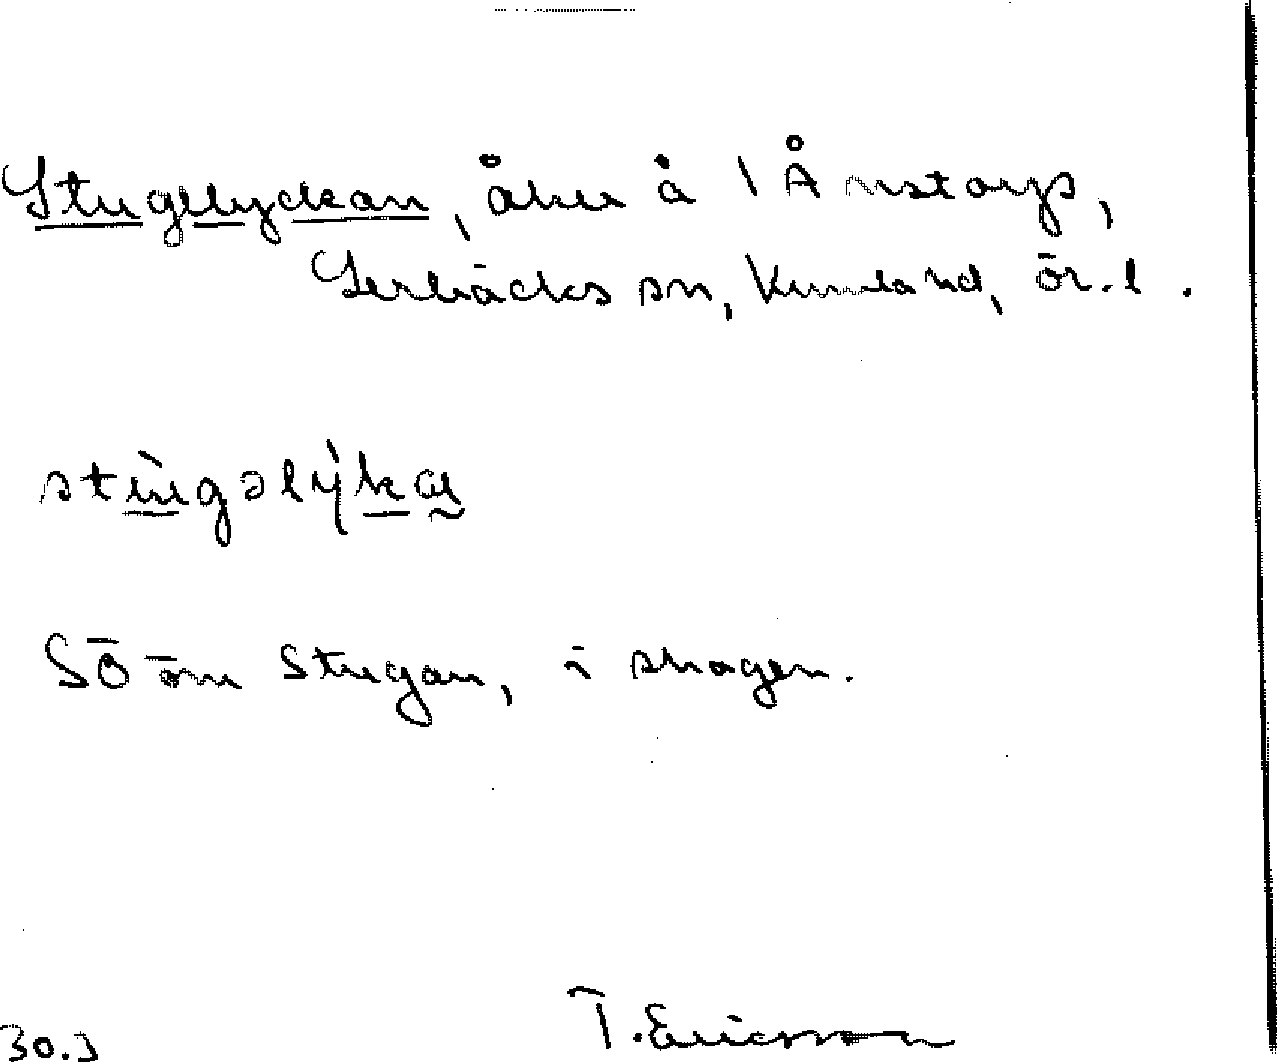 Stugelyckan, åker å 1 Ånstorp,
Lerbäcks sn, Kumla hd, ör. l.
stùgəlỳkaɳ
SÖ om Stugan, i skogen.
30. T. Ericsson